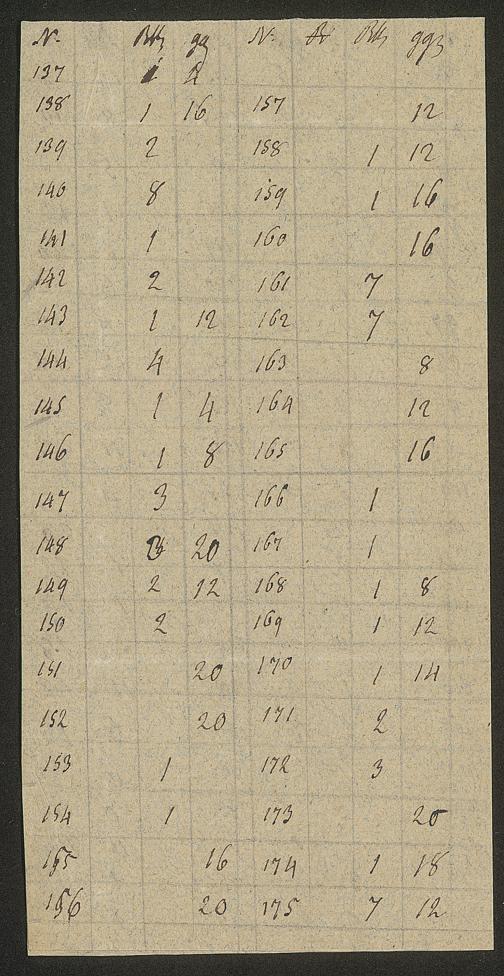 N. Rth gg N. Rth ggz
137 1 2
138 1 16 157 12
139 2 158 1 12
140 8 159 1 16
141 1 160 16
142 2 161 7
143 1 12 162 7
144 4 163 8
145 1 4 164 12
146 1 8 165 16
147 3 166 1
148 3 20 167 1
149 2 12 168 1 8
150 2 169 1 12
151 20 170 1 14
152 20 171 2
153 1 172 3
154 1 173 20
155 16 174 1 18
156 20 175 7 12